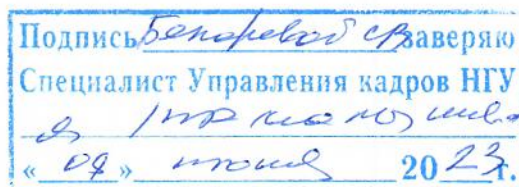 Подпись Бекаревой СВ заверяю
Специалист Управления кадров НГУ
« 08 » июня 2023 г.